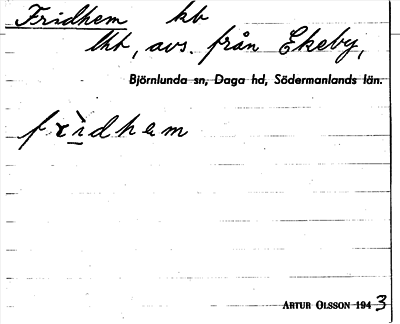 Fridhem kb
lht, avs. från Ekeby,
Björnlunda sn, Daga hd, Södermanlands län.
frìdhem
ARTUR OLSSON 1943